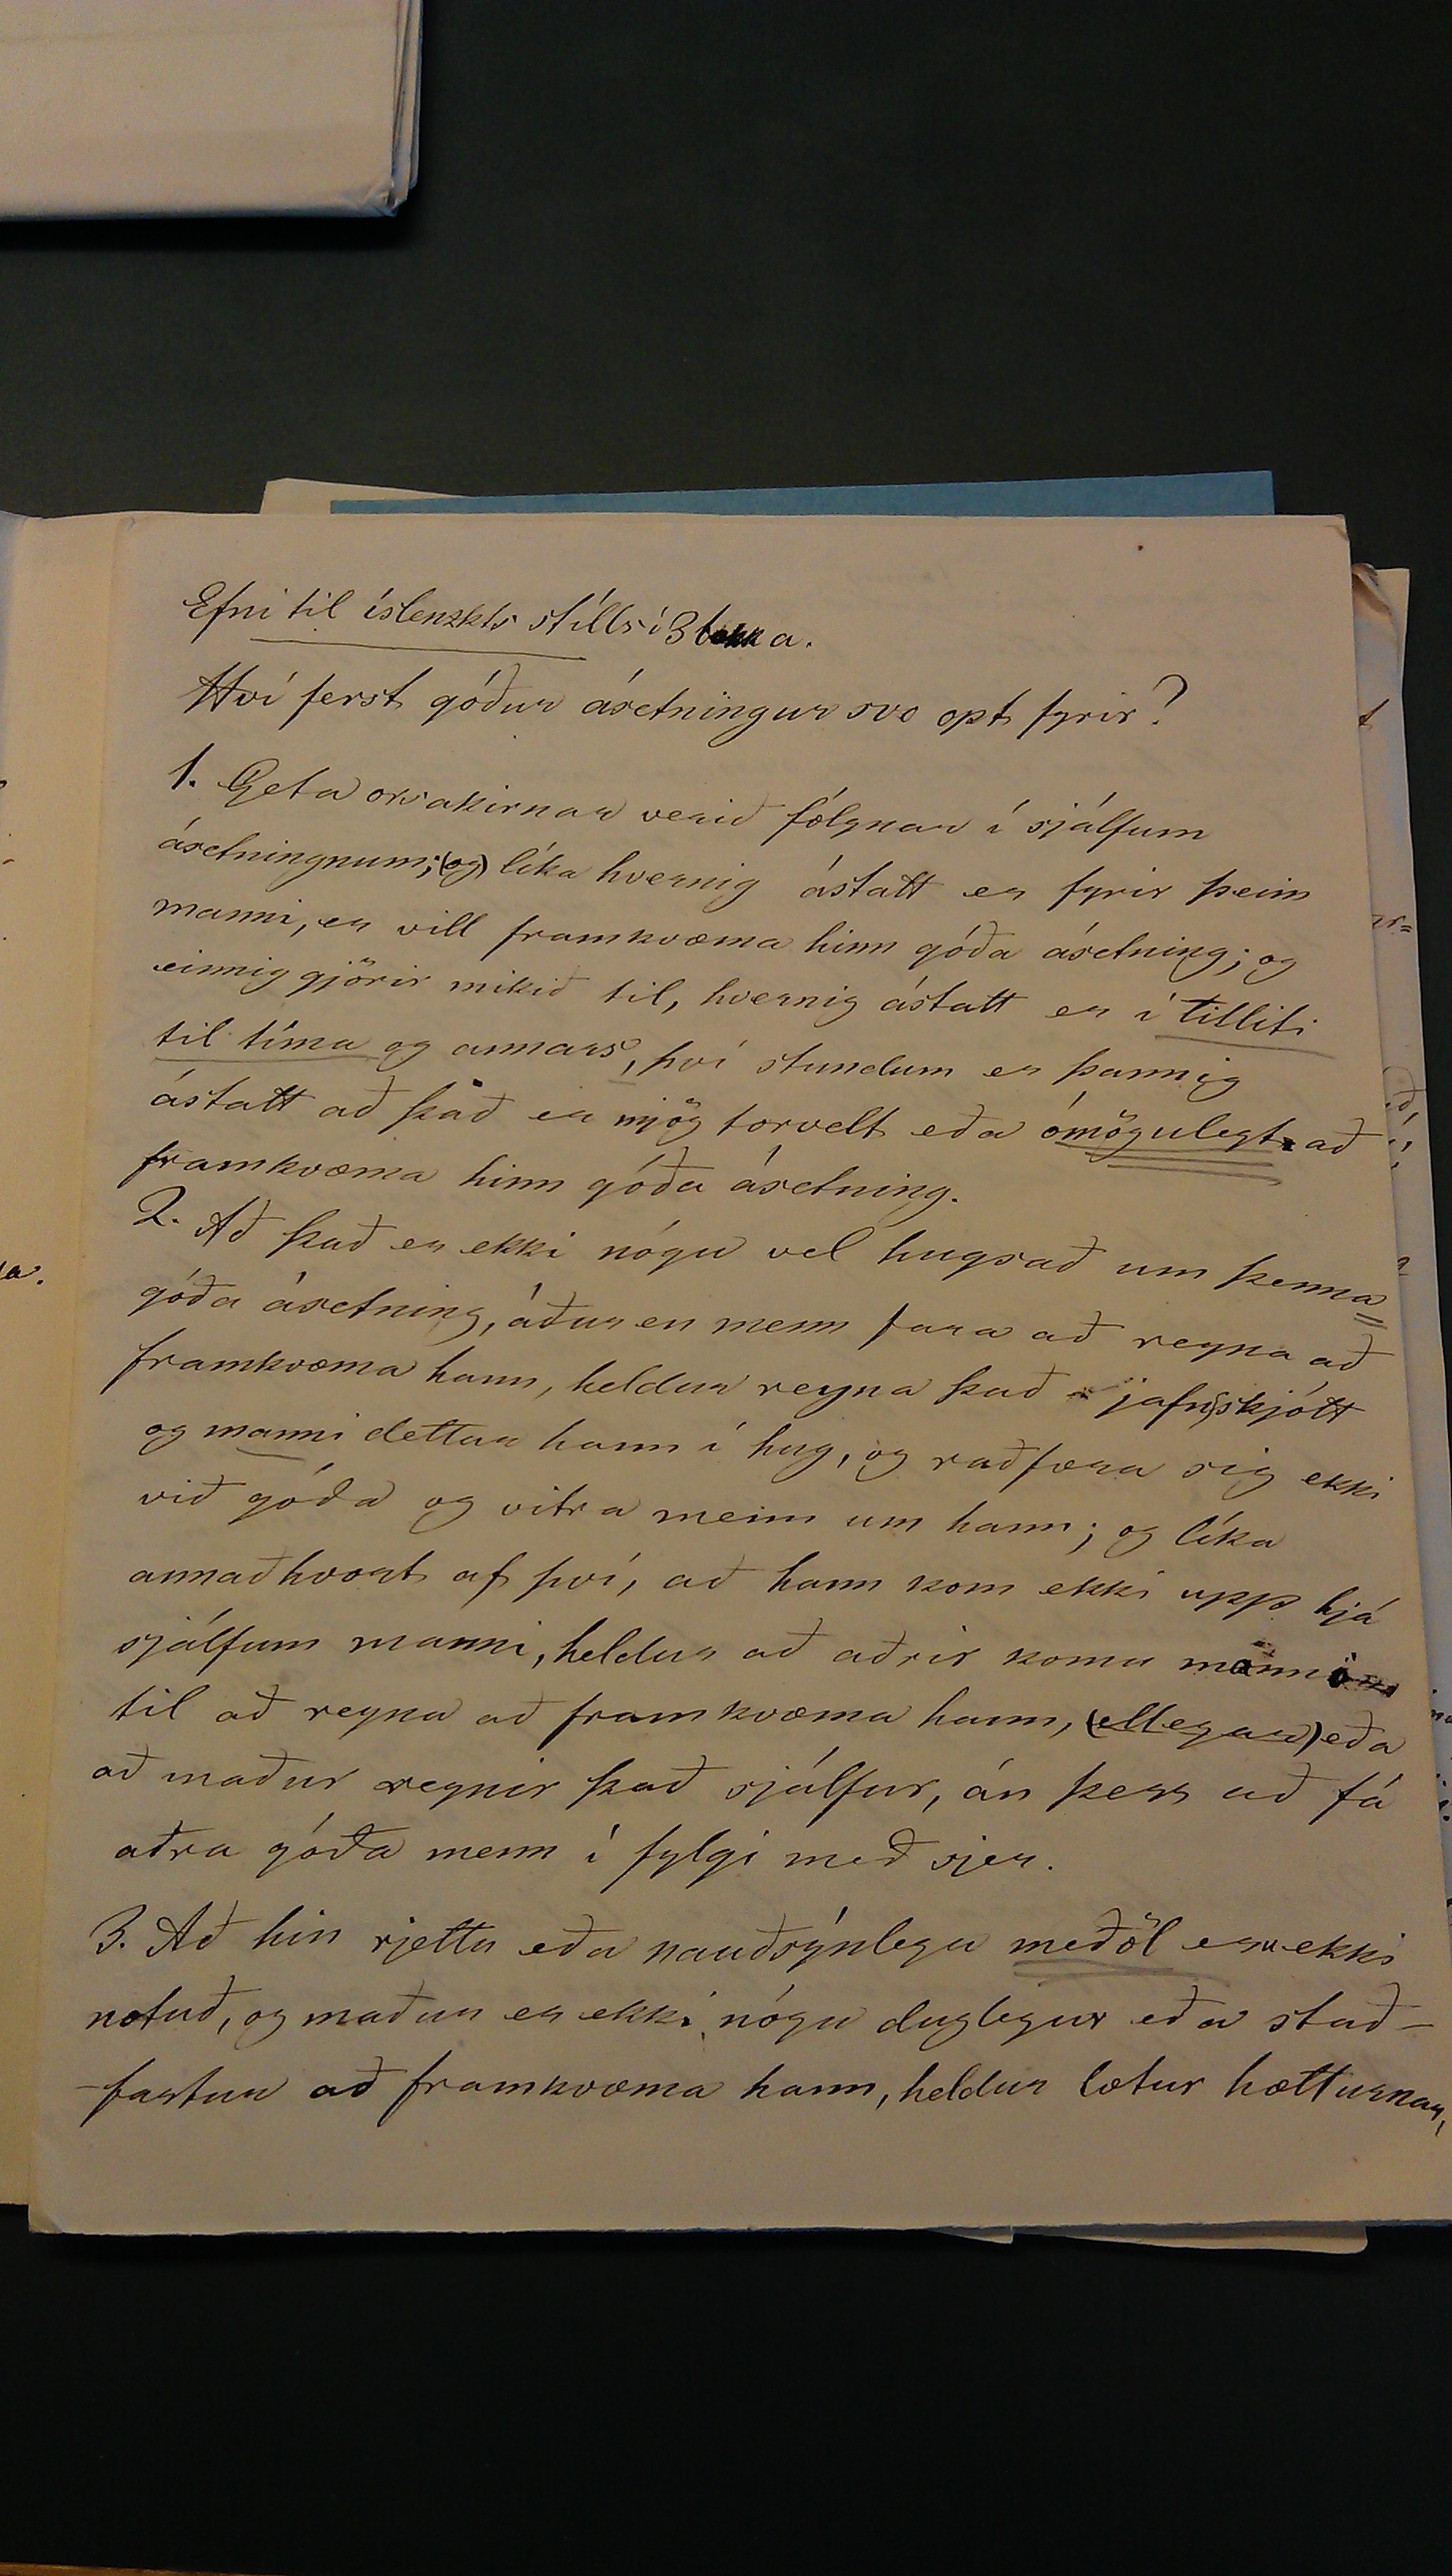 Efni til íslenzks stíls í 3 bekk a.
Hví ferst góður ásetningur svo opt fyrir?
1. Geta orsakirnar verið fólgnar í sjálfum
ásetningnum; (og) líka hvernig ástatt er fyrir þeim
manni, er vill framkvæma hinn góða ásetning; og
einnig gjörir mikið til, hvernig ástatt er í tilliti
til tíma og annars, því stundum er þannig
ástatt að það er mjög torvelt eða ómögulegt að
framkvæma hinn góða ásetning.
2. Að það er ekki nógu vel hugsað um þenna
góða ásetning, áður en menn fara að reyna að
framkvæma hann, heldur reyna það jafnskjótt
og manni dettur hann í hug, og raðfæra sig ekki
við góða og vitra menn um hann; og líka
annaðhvort af því, að hann kom ekki upp hjá
sjálfum manni, heldur að aðrir komu manni
til að reyna að framkvæma hann, (ellegar) eða
að maður reynir það sjálfur, án þess að fá
aðra góða menn í fylgi með sjer.
3. Að hin rjettu eða nauðsýnlegu meðöl eru ekki
notuð, og maður er ekki nógu duglegur eða stað-
-fastur að framkvæma hann, heldur lætur hætturnar,